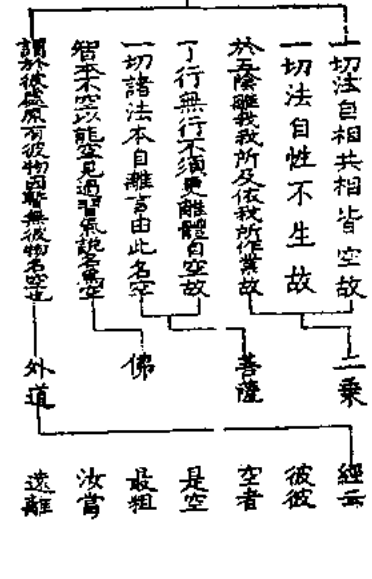 一切法自相共相皆空故
一切法自性不生故
於五陰離我我所及依我所作業故
了行無行不須更離體自空故
一切諸法本自離言由此名空
智本不空以能空見過習氣說名為空
謂於彼處風有彼物因暫無彼物名空也
二乗
菩薩
佛
外道
經云
彼彼
空者
是空
最粗
汝當
遠離